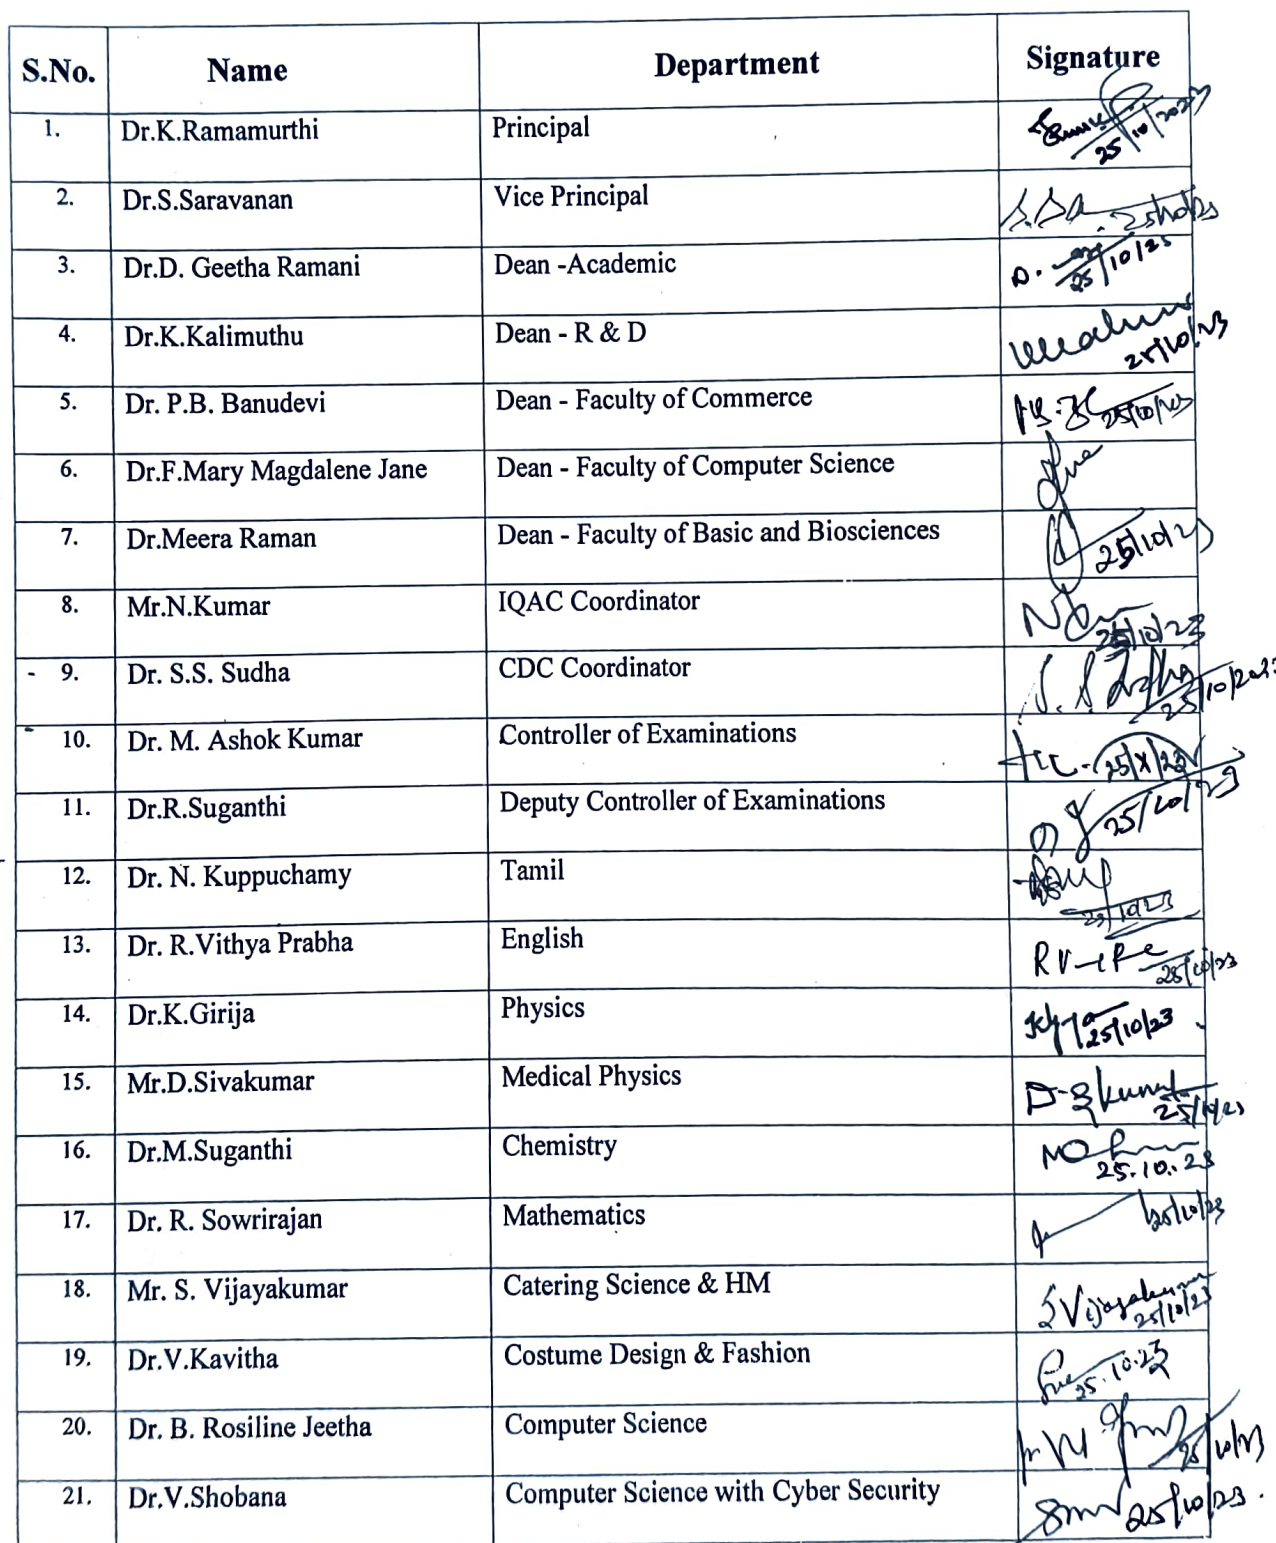 S.No. Name Department Signature
1. Dr.K.Ramamurthi Principal 25/10/2023
2. Dr.S.Saravanan Vice Principal 25/10/23
3. Dr.D. Geetha Ramani Dean -Academic D. 25/10/23
4. Dr.K.Kalimuthu Dean - R & D 25/10/23
5. Dr. P.B. Banudevi Dean - Faculty of Commerce 25/10/23
6. Dr.F.Mary Magdalene Jane Dean - Faculty of Computer Science
7. Dr.Meera Raman Dean - Faculty of Basic and Biosciences 25/10/23
8. Mr.N.Kumar IQAC Coordinator 25/10/23
9. Dr. S.S. Sudha CDC Coordinator S.S. Sudha 25/10/2023
10. Dr. M. Ashok Kumar Controller of Examinations 25/X/23
11. Dr.R.Suganthi Deputy Controller of Examinations 25/10/23
12. Dr. N. Kuppuchamy Tamil 25/10/23
13. Dr. R.Vithya Prabha English 25/10/23
14. Dr.K.Girija Physics 25/10/23
15. Mr.D.Sivakumar Medical Physics 25/10/23
16. Dr.M.Suganthi Chemistry 25.10.23
17. Dr. R. Sowrirajan Mathematics 25/10/23
18. Mr. S. Vijayakumar Catering Science & HM S Vijayakumar 25/10/23
19. Dr.V.Kavitha Costume Design & Fashion 25.10.23
20. Dr. B. Rosiline Jeetha Computer Science 25/10/23
21. Dr.V.Shobana Computer Science with Cyber Security 25/10/23.